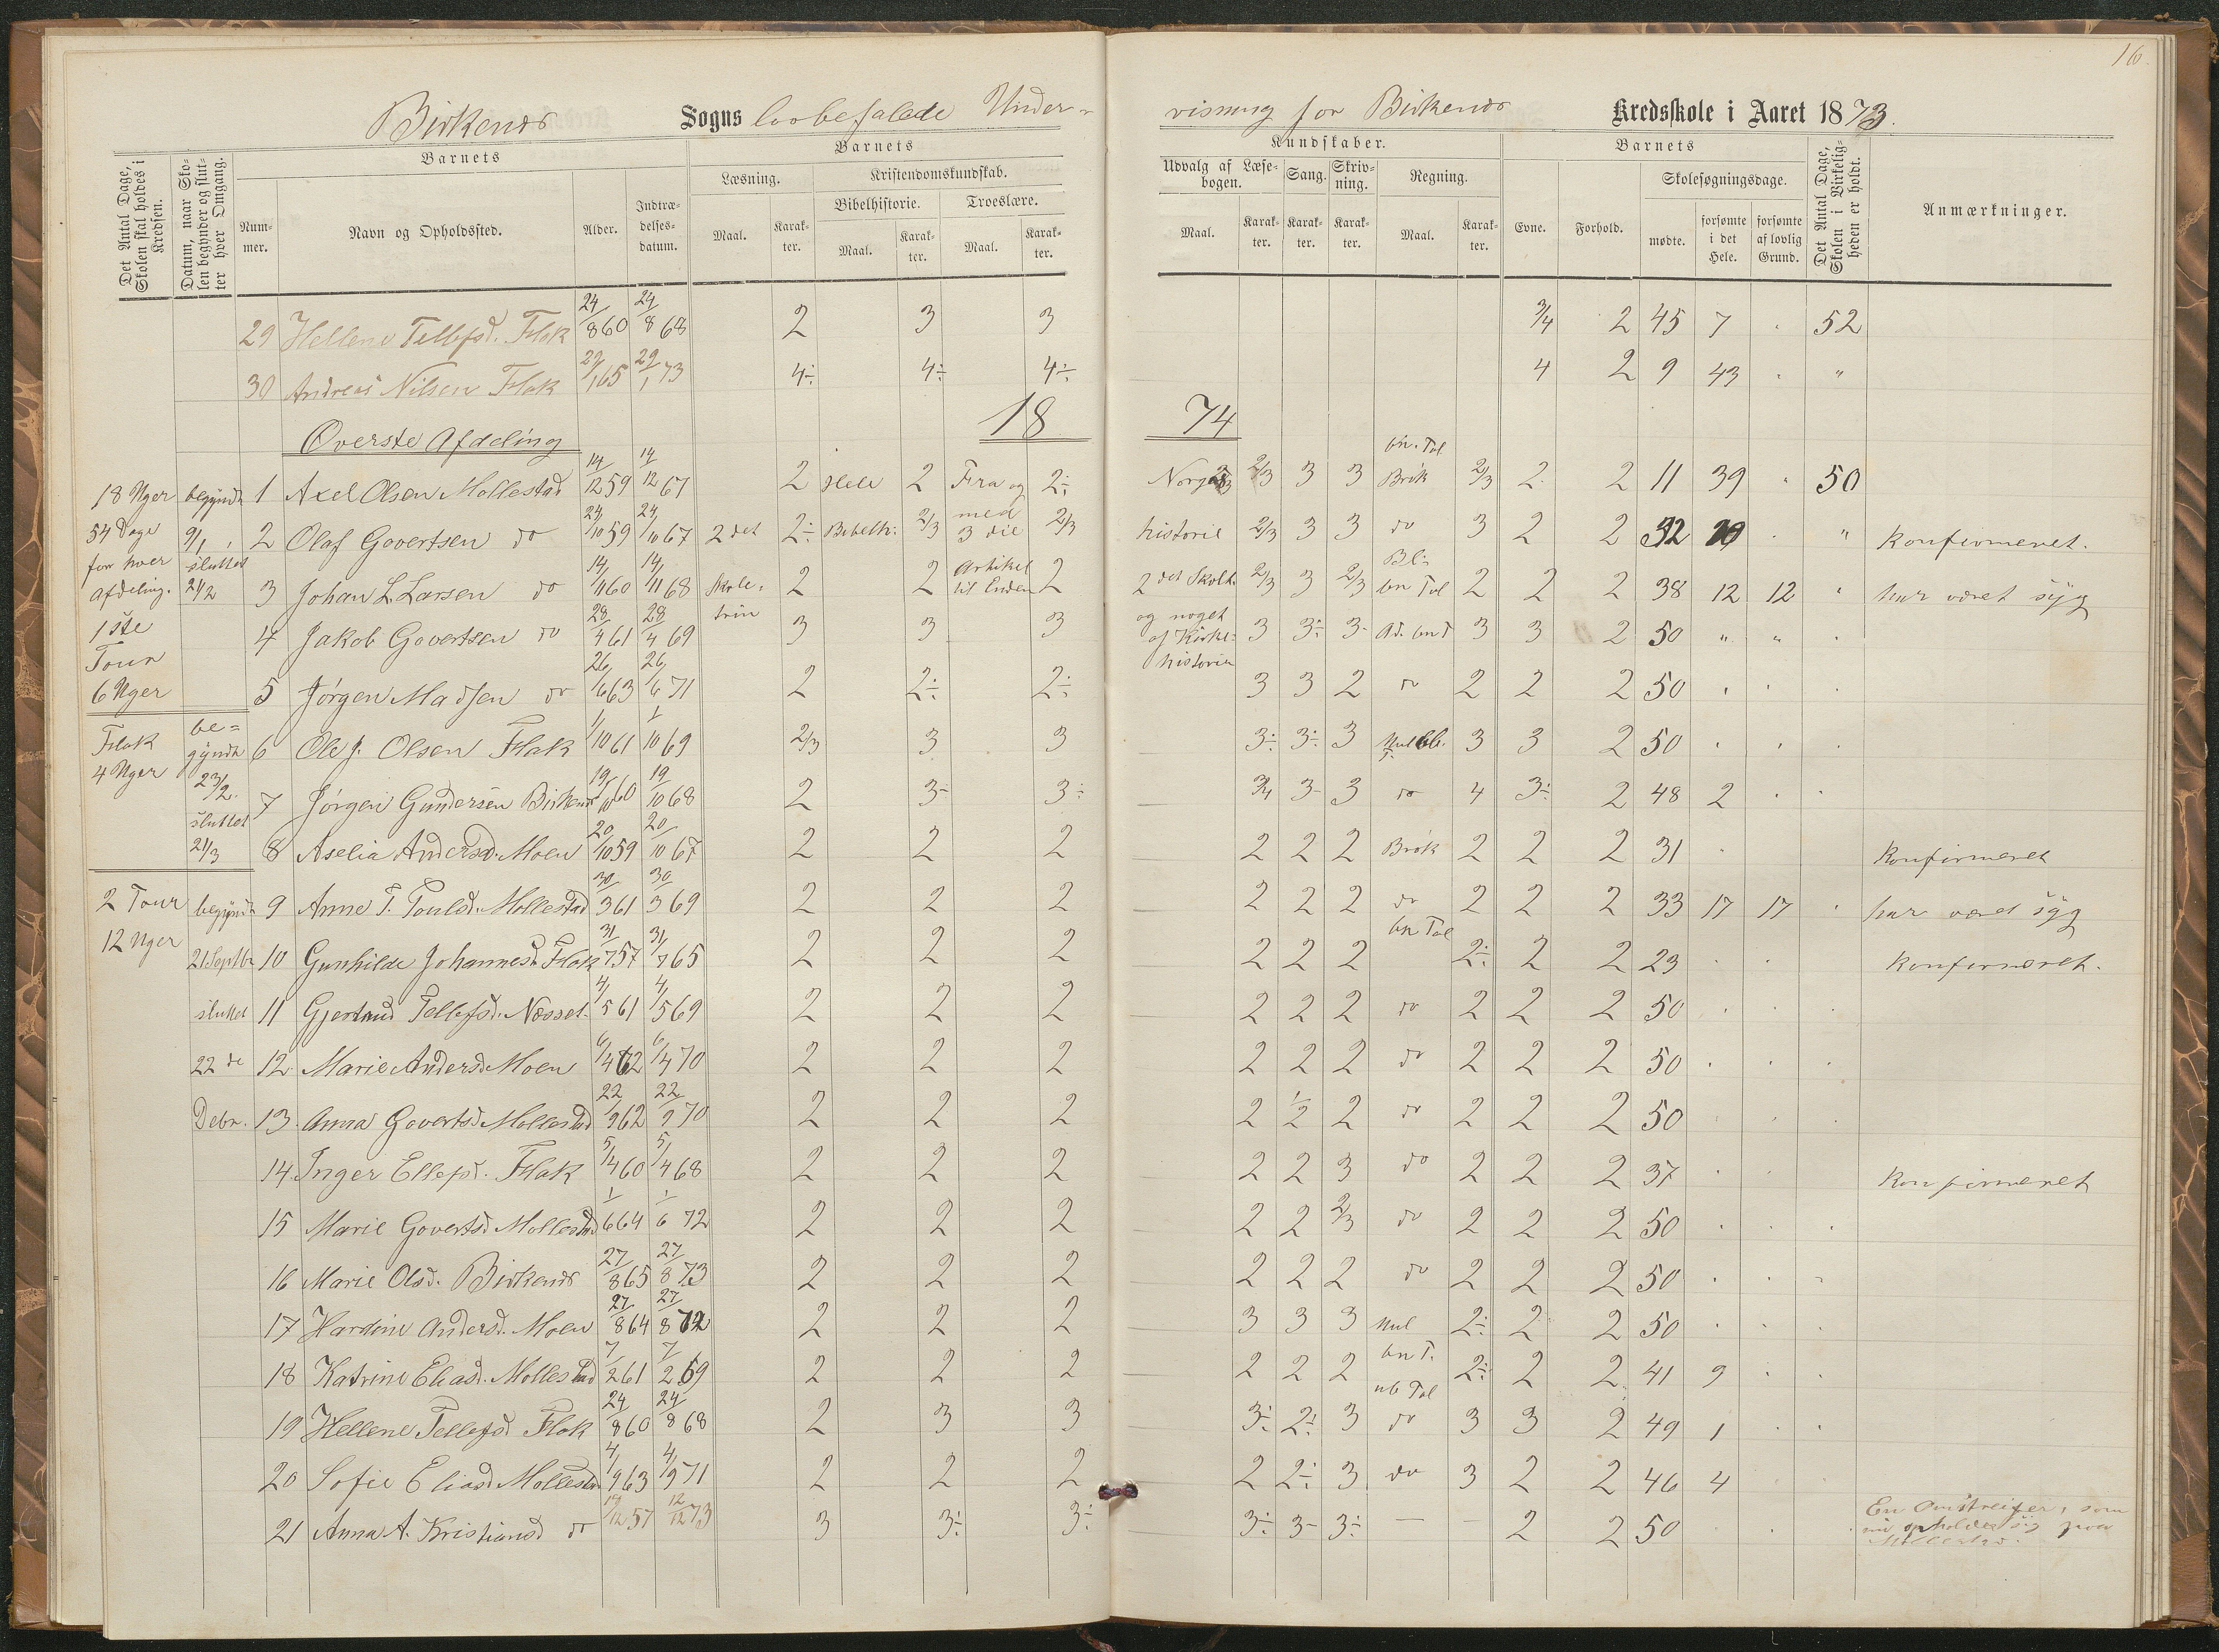 16.
Birkenes Sogns lovbefalede Under- visning for Birkenes Kredsskole i Aaret 1873.
Det Antal Dage, Skolen skal holdes i Kredsen.
Datum, naar Skolen begynder og slutter hver Omgang.
Barnets
Nummer.
Navn og Opholdssted.
Alder.
Indtrædelsesdatum.
Barnets
Kundskaber.
Læsning.
Maal.
Karakter.
Kristendomskundskab.
Bibelhistorie.
Maal.
Karakter.
Troeslære.
Maal.
Karakter.
Udvalg af Læsebogen.
Maal.
Karakter.
Sang.
Karakter.
Skrivning.
Karakter.
Regning.
Maal.
Karakter.
Barnets
Evne.
Forhold.
Skolesøgningsdage.
mødte.
forsømte i det Hele.
forsømte af lovlig Grund.
Det Antal Dage, Skolen i Virkeligheden er holdt.
Anmærkninger.
29 Hellene Tellefsd. Flak 24/8 60 24/8 68 2 3 3 3/4 2 45 7 . 52
30 Andreas Nilsen Flak 29/1 65 29/1 73 4÷ 4÷ 4÷ 4 2 9 43 . "
Øverste Afdeling 18 74
18 Uger begyndt 1 Axel Olsen Mollestad 14/12 59 14/12 67 2 Hele 2 Fra og 2÷ Norges 2/3 3 3 bn. Tal Brøk 2/3 2 2 11 39 . 50
54 Dage 9/1 2 Olaf Govertsen do 24/10 59 24/10 67 2 det 2÷ Bibelh: 2/3 med 3 die 2/3 historie 2/3 3 3 do 3 2 2 32 . " Konfirmeret.
for hver sluttet
afdeling. 21/2 3 Johan L. Larsen do 14/11 60 14/11 68 Skole- 2 2 Artikel til Enden 2 2 det Skolt. 2/3 3 2/3 bn Tal 2 2 2 38 12 12 " har været syg
1ste 4 Jakob Govertsen do 28/4 61 28/4 69 trin 3 3 3 og noget af Kirke- 3 3÷ 3- Ad. bn T 3 3 2 50 " " .
Tour historien
6 Uger 5 Jørgen Madsen do 26/6 63 26/6 71 2 2÷ 2÷ 3 3 2 do 2 2 2 50 . . .
Flak be= gyndt 6 Ole J. Olsen Flak 1/10 61 1/10 69 2/3 3 3 3÷ 3÷ 3 3 3 2 50 . . .
4 Uger 23/2. 7 Jørgen Gundersen Birkenes 19/10 60 19/10 68 2 3- 3÷ 3/4 3- 3 do 4 3÷ 2 48 2 . .
sluttet
21/3 8 Aselia Andersd. Moen 20/10 59 20/10 67 2 2 2 2 2 2 Brøk 2 2 2 31 . Konfirmeret
2 Tour begyndt 9 Anne T. Poulsd. Mollestad 30/3 61 30/3 69 2 2 2 2 2 2 do 2 2 2 33 17 17 . har været syg
12 Uger 21 Septbr 10 Gunhilde Johannesd. Flak 31/7 57 31/7 65 2 2 2 2 2 2 bn Tal 2÷ 2 2 23 . . Konfirmeret.
sluttet 11 Gjertrud Tellefsd. Næsset 4/5 61 4/5 69 2 2 2 2 2 2 do 2 2 2 50 . . .
22 de 12 Marie Andersd. Moen 6/4 62 6/4 70 2 2 2 2 2 2 do 2 2 2 50 . . .
Debr. 13. Anna Govertsd. Mollestad 22/9 62 22/9 70 2 2 2 2 1/2 2 do 2 2 2 50 . . .
14. Inger Ellefsd. Flak 5/4 60 5/4 68 2 2 2 2 2 3 do 2 2 2 37 . . Konfirmeret
15 Marie Govertsd. Mollestad 1/6 64 1/6 72 2 2 2 2 2 2/3 do 2 2 2 50 . . .
16 Marie Olsd. Birkenes 27/8 65 27/8 73 2 2 2 2 2 2 do 2 2 2 50 . . .
17 Hardine Andersd. Moen 27/8 64 27/8 72 2 2 2 3 3 3 Mul 2÷ 2 2 50 . . .
18 Katrine Eliasd. Mollestad 7/2 61 7/2 69 2 2 2 2 2 2 bn T. 2÷ 2 2 41 9 . .
19 Hellene Tellefsd Flak 24/8 60 24/8 68 2 3 3 3÷ 2÷ 3 ub Tal do 3 3 2 49 1 . .
20 Sofie Eliasd. Mollestad 4/9 63 4/9 71 2 2 2 2 2÷ 3 do 3 2 2 46 4
21 Anna A. Kristiansd do 19/12 57 12/12 73 3 3÷ 3÷ 3÷ 3- 3÷ — — 2 2 50 . . . En Omstreifer, som
nu opholder sig paa
Mollestad.